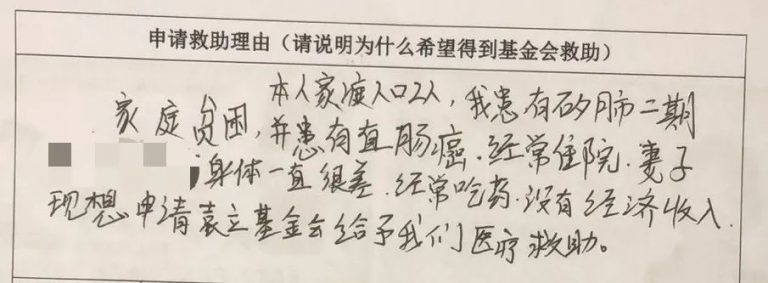 申请救助理由（请说明为什么希望得到基金会救助）
本人家庭人口2人，我患有矽肺二期
家庭贫困，并患有直肠癌．经常住院．妻子
，身体一直很差．经常吃药．没有经济收入．
现想申请袁立基金会给予我们医疗救助。